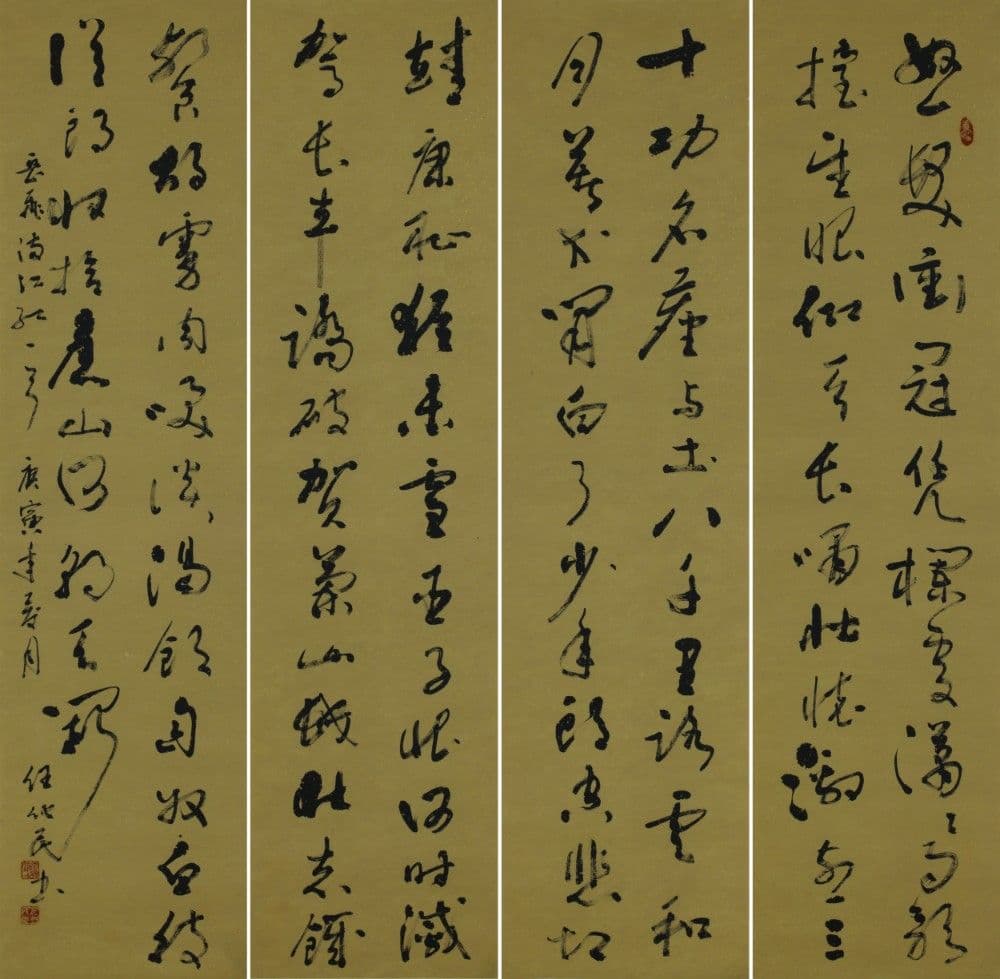 怒髮衝冠凭欄處瀟瀟雨歇
擡望眼仰天長嘯壯懷激烈三
十功名塵与土八千里路雲和
月莫等閑白了少年頭空悲切
靖康恥猶未雪臣子恨何時滅
駕長車踏破賀蘭山缺壯志饑
餐胡虜肉笑談渴飲匈奴血待
從頭收拾舊山河朝天闕
岳飛滿江紅一首 庚寅年月 任代民书